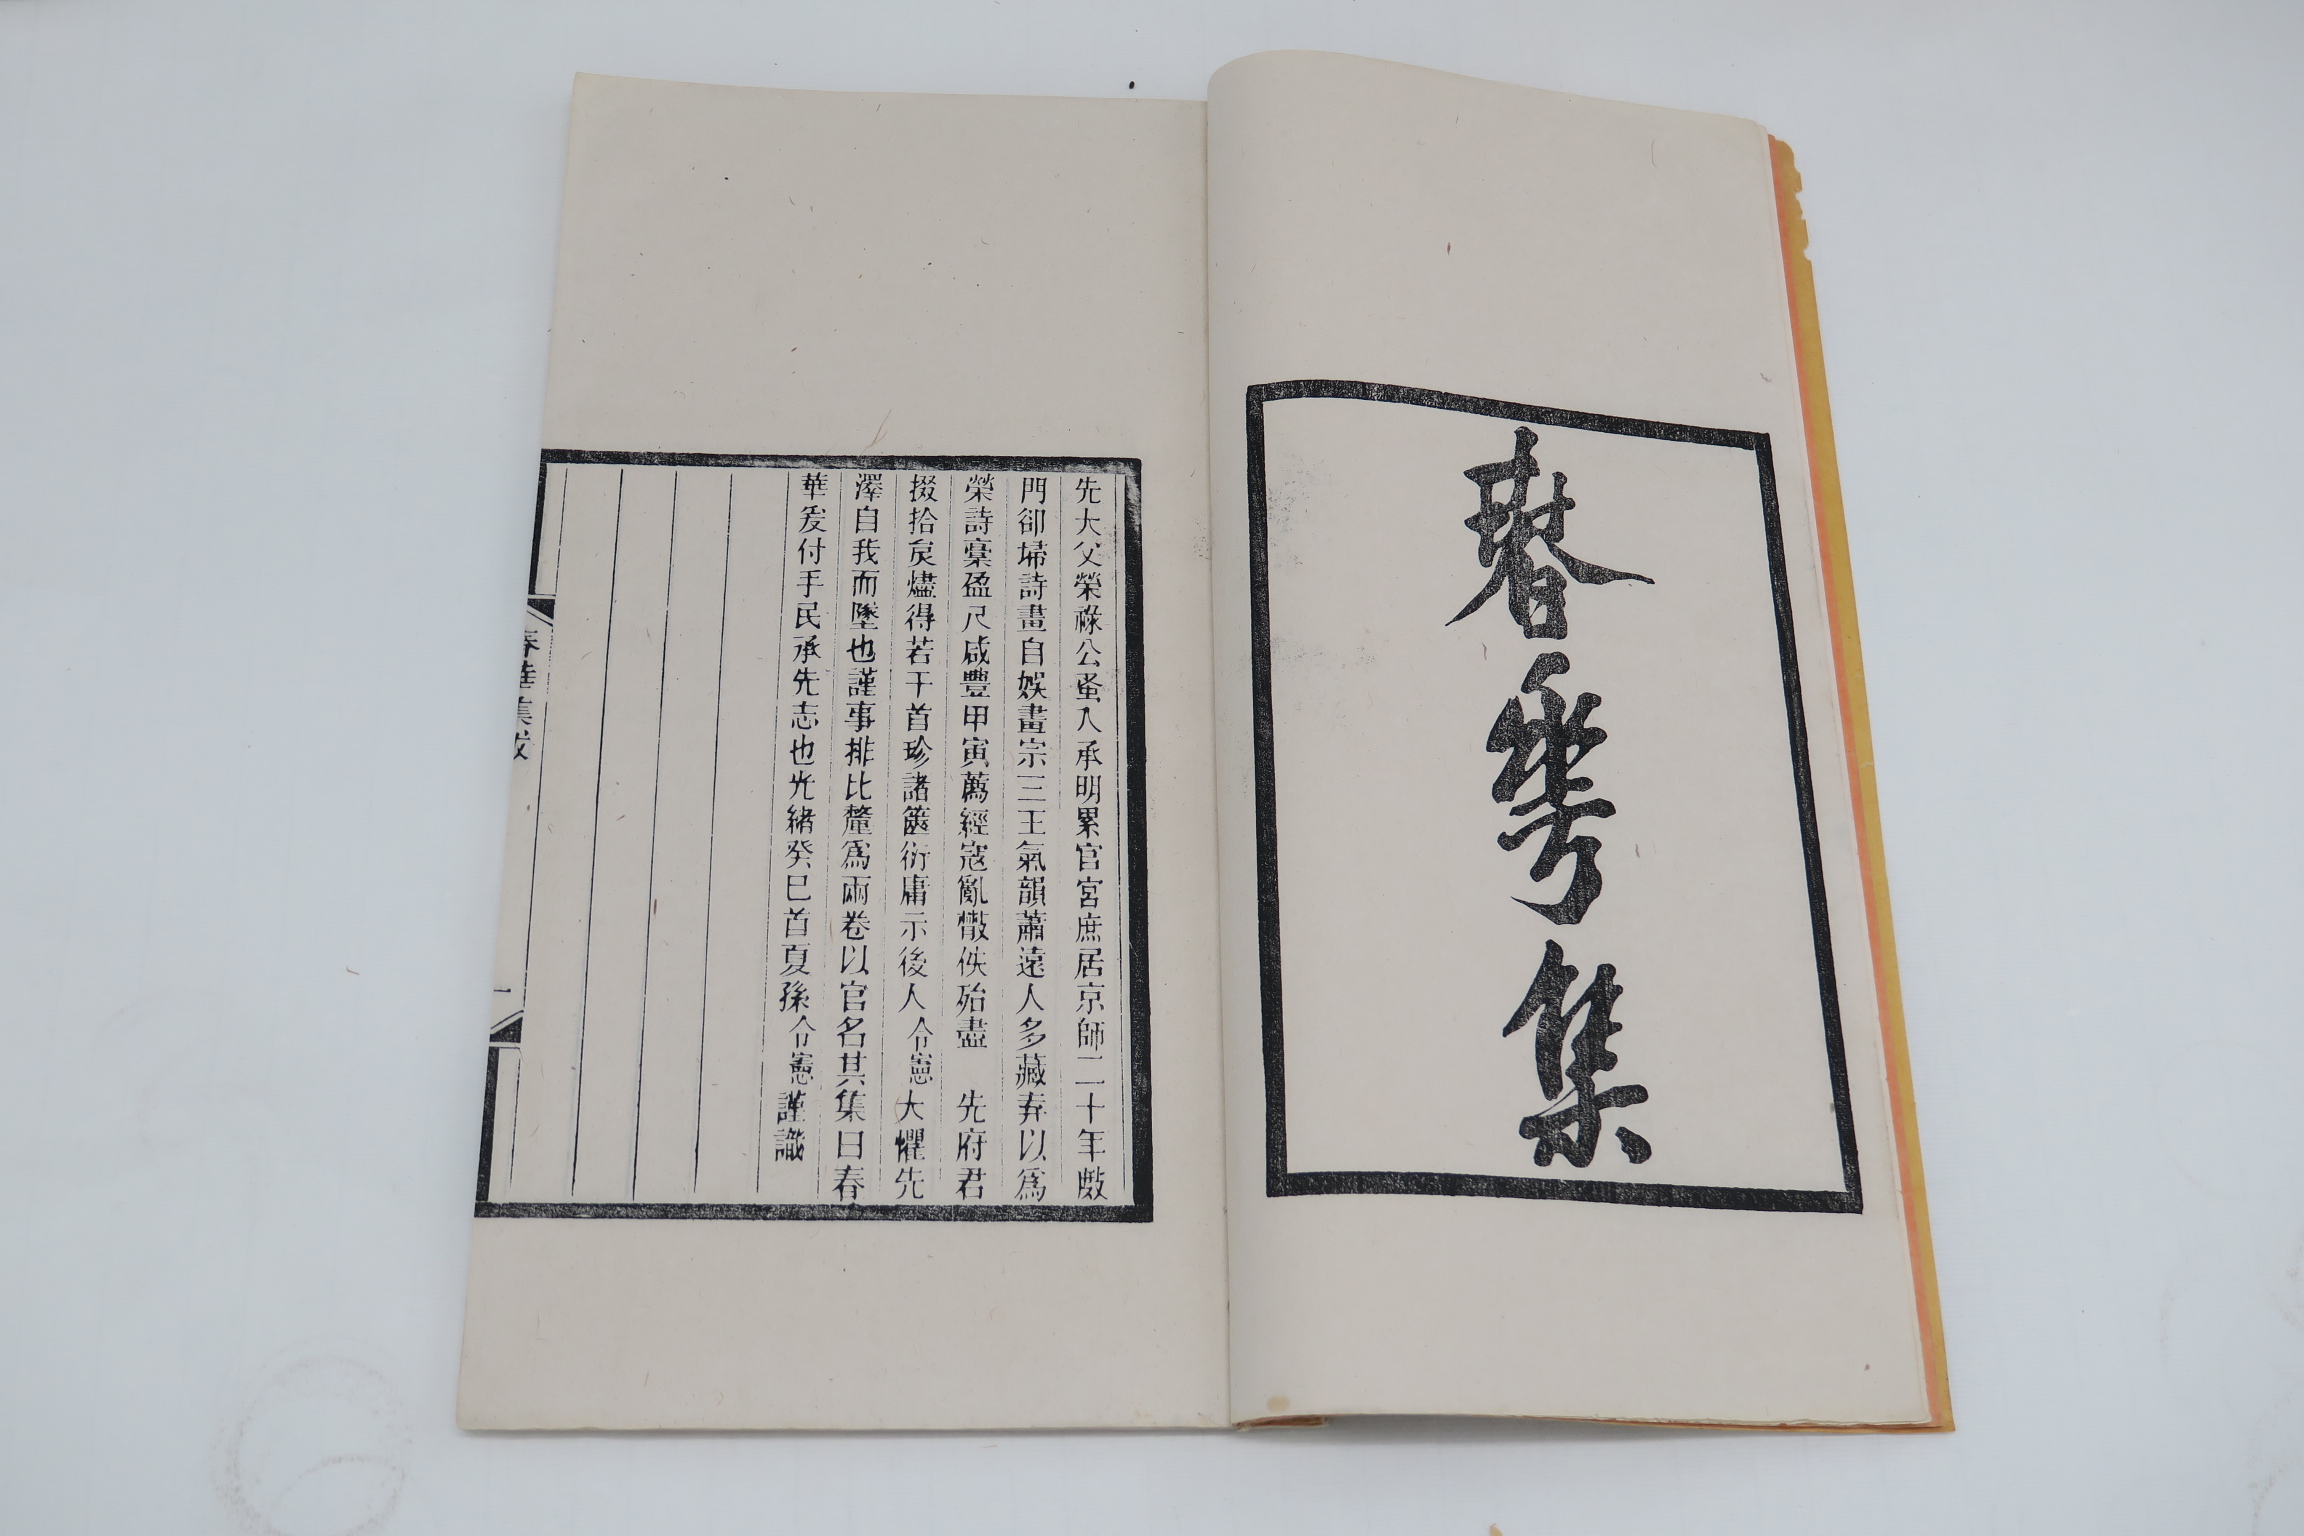 春華集
先大父榮祿公蚤入承明累官宮庶居京師二十年敭
門卻埽詩畫自娛畫宗三王氣韻蕭遠人多藏弆以爲
榮詩稾盈尺咸豐甲寅薦經寇亂散佚殆盡 先府君
掇拾灰燼得若干首珍諸篋衍庸示後人令憲大懼先
澤自我而墜也謹事排比釐爲兩卷以官名其集曰春
華爰付手民承先志也光緒癸巳首夏孫令憲謹識
春華集跋
一